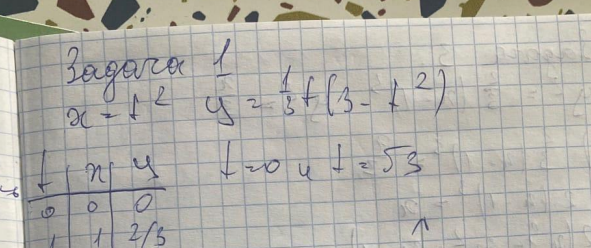 Задача 1
x = t² y = 1/3 t (3 - t²)
t x y t = 0 и t = √3
0 0 0
1 1 2/3